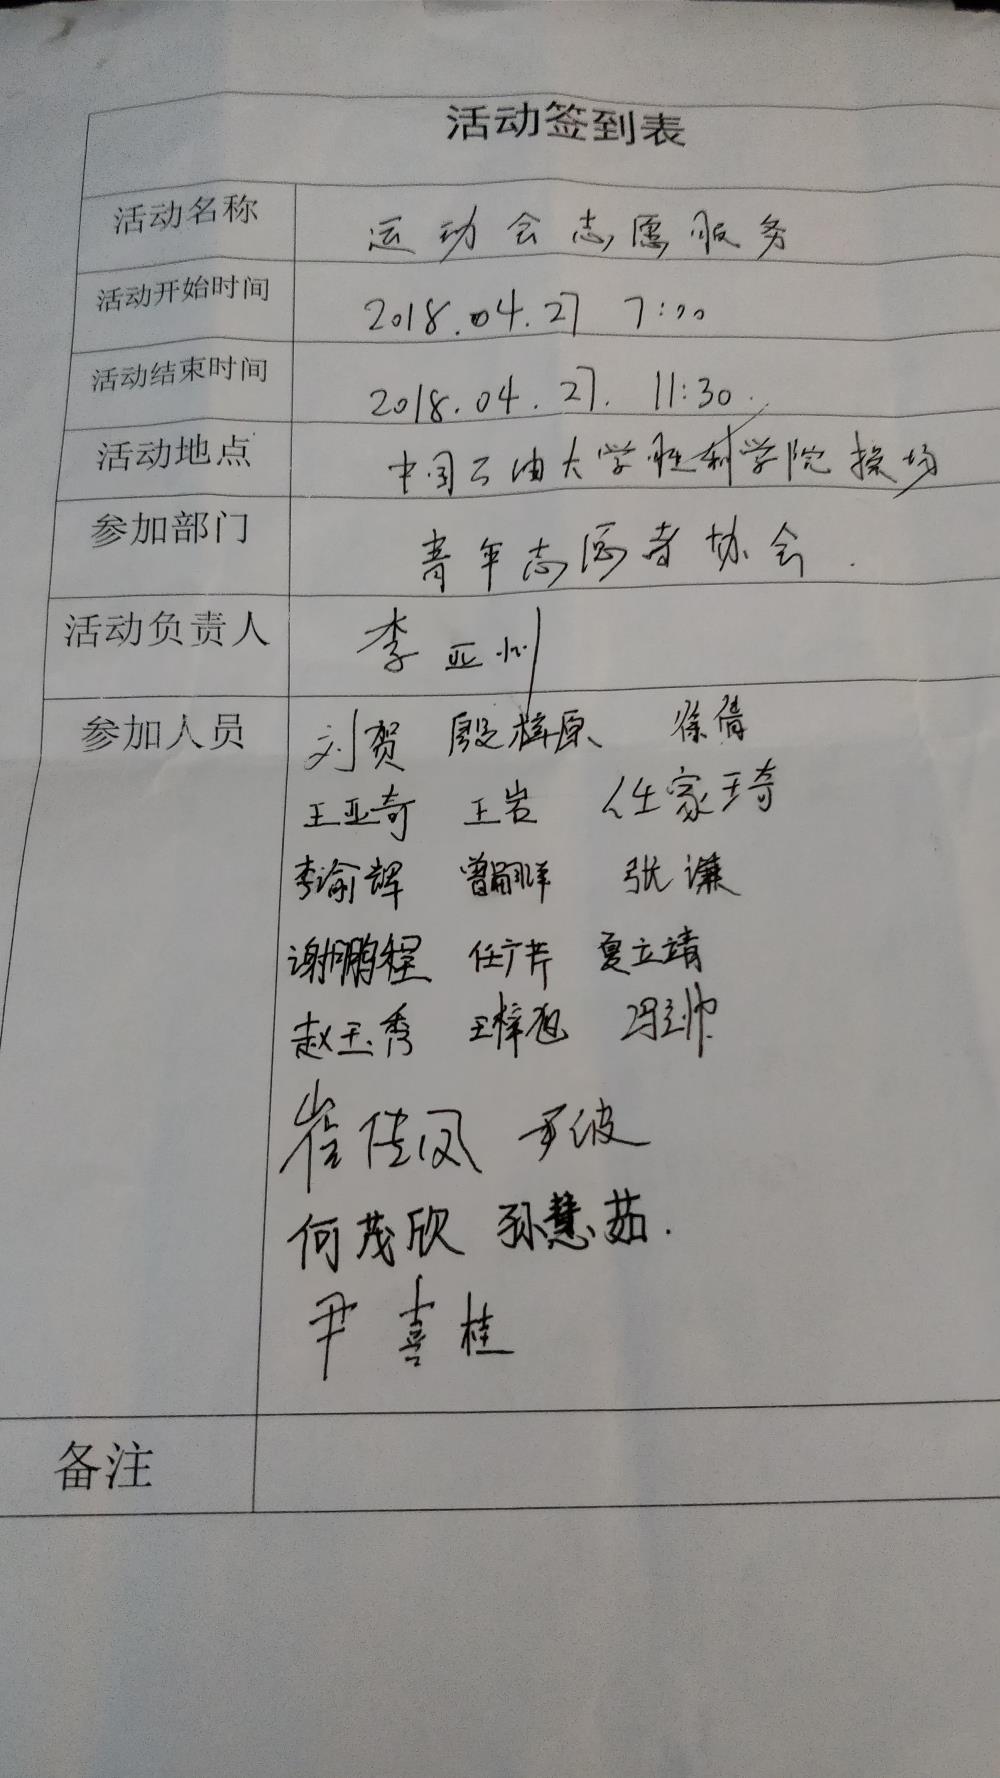 活动签到表
活动名称 运动会志愿服务
活动开始时间 2018.04.27 7:00
活动结束时间 2018.04.27. 11:30.
活动地点 中国石油大学胜利学院操场
参加部门 青年志愿者协会.
活动负责人 李亚州
参加人员 刘贺 殷梓原 徐倩
王亚奇 王岩 任家琦
李谕辉 曾翮洋 张谦
谢鹏程 任广芹 夏立靖
赵玉秀 王梓旭 冯立帅
崔佳凤
何茂欣 孙慧茹.
尹喜桂
备注